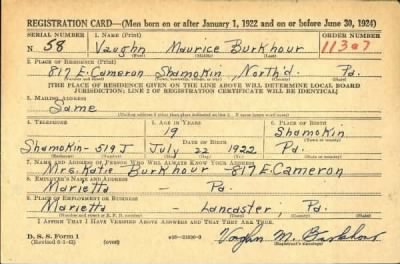 REGISTRATION CARD—(Men born on or after January 1, 1922 and on or before June 30, 1924)
SERIAL NUMBER 1. NAME (Print) ORDER NUMBER
N 58 Vaughn Maurice Burkhour 11307
2. PLACE OF RESIDENCE (Print)
817 E. Cameron Shamokin, North'd. Pa.
[THE PLACE OF RESIDENCE GIVEN ON THE LINE ABOVE WILL DETERMINE LOCAL BOARD
JURISDICTION; LINE 2 OF REGISTRATION CERTIFICATE WILL BE IDENTICAL]
3. MAILING ADDRESS
Same
4. TELEPHONE 5. AGE IN YEARS 6. PLACE OF BIRTH
19 Shamokin
DATE OF BIRTH
Shamokin-519 J July 22 1922 Pa.
7. NAME AND ADDRESS OF PERSON WHO WILL ALWAYS KNOW YOUR ADDRESS
Mrs. Katie Burkhour-817 E. Cameron
8. EMPLOYER'S NAME AND ADDRESS
Marietta - Pa.
9. PLACE OF EMPLOYMENT OR BUSINESS
Marietta - Lancaster, Pa.
I AFFIRM THAT I HAVE VERIFIED ABOVE ANSWERS AND THAT THEY ARE TRUE.
D. S. S. Form 1
(over) Vaughn M. Burkhour